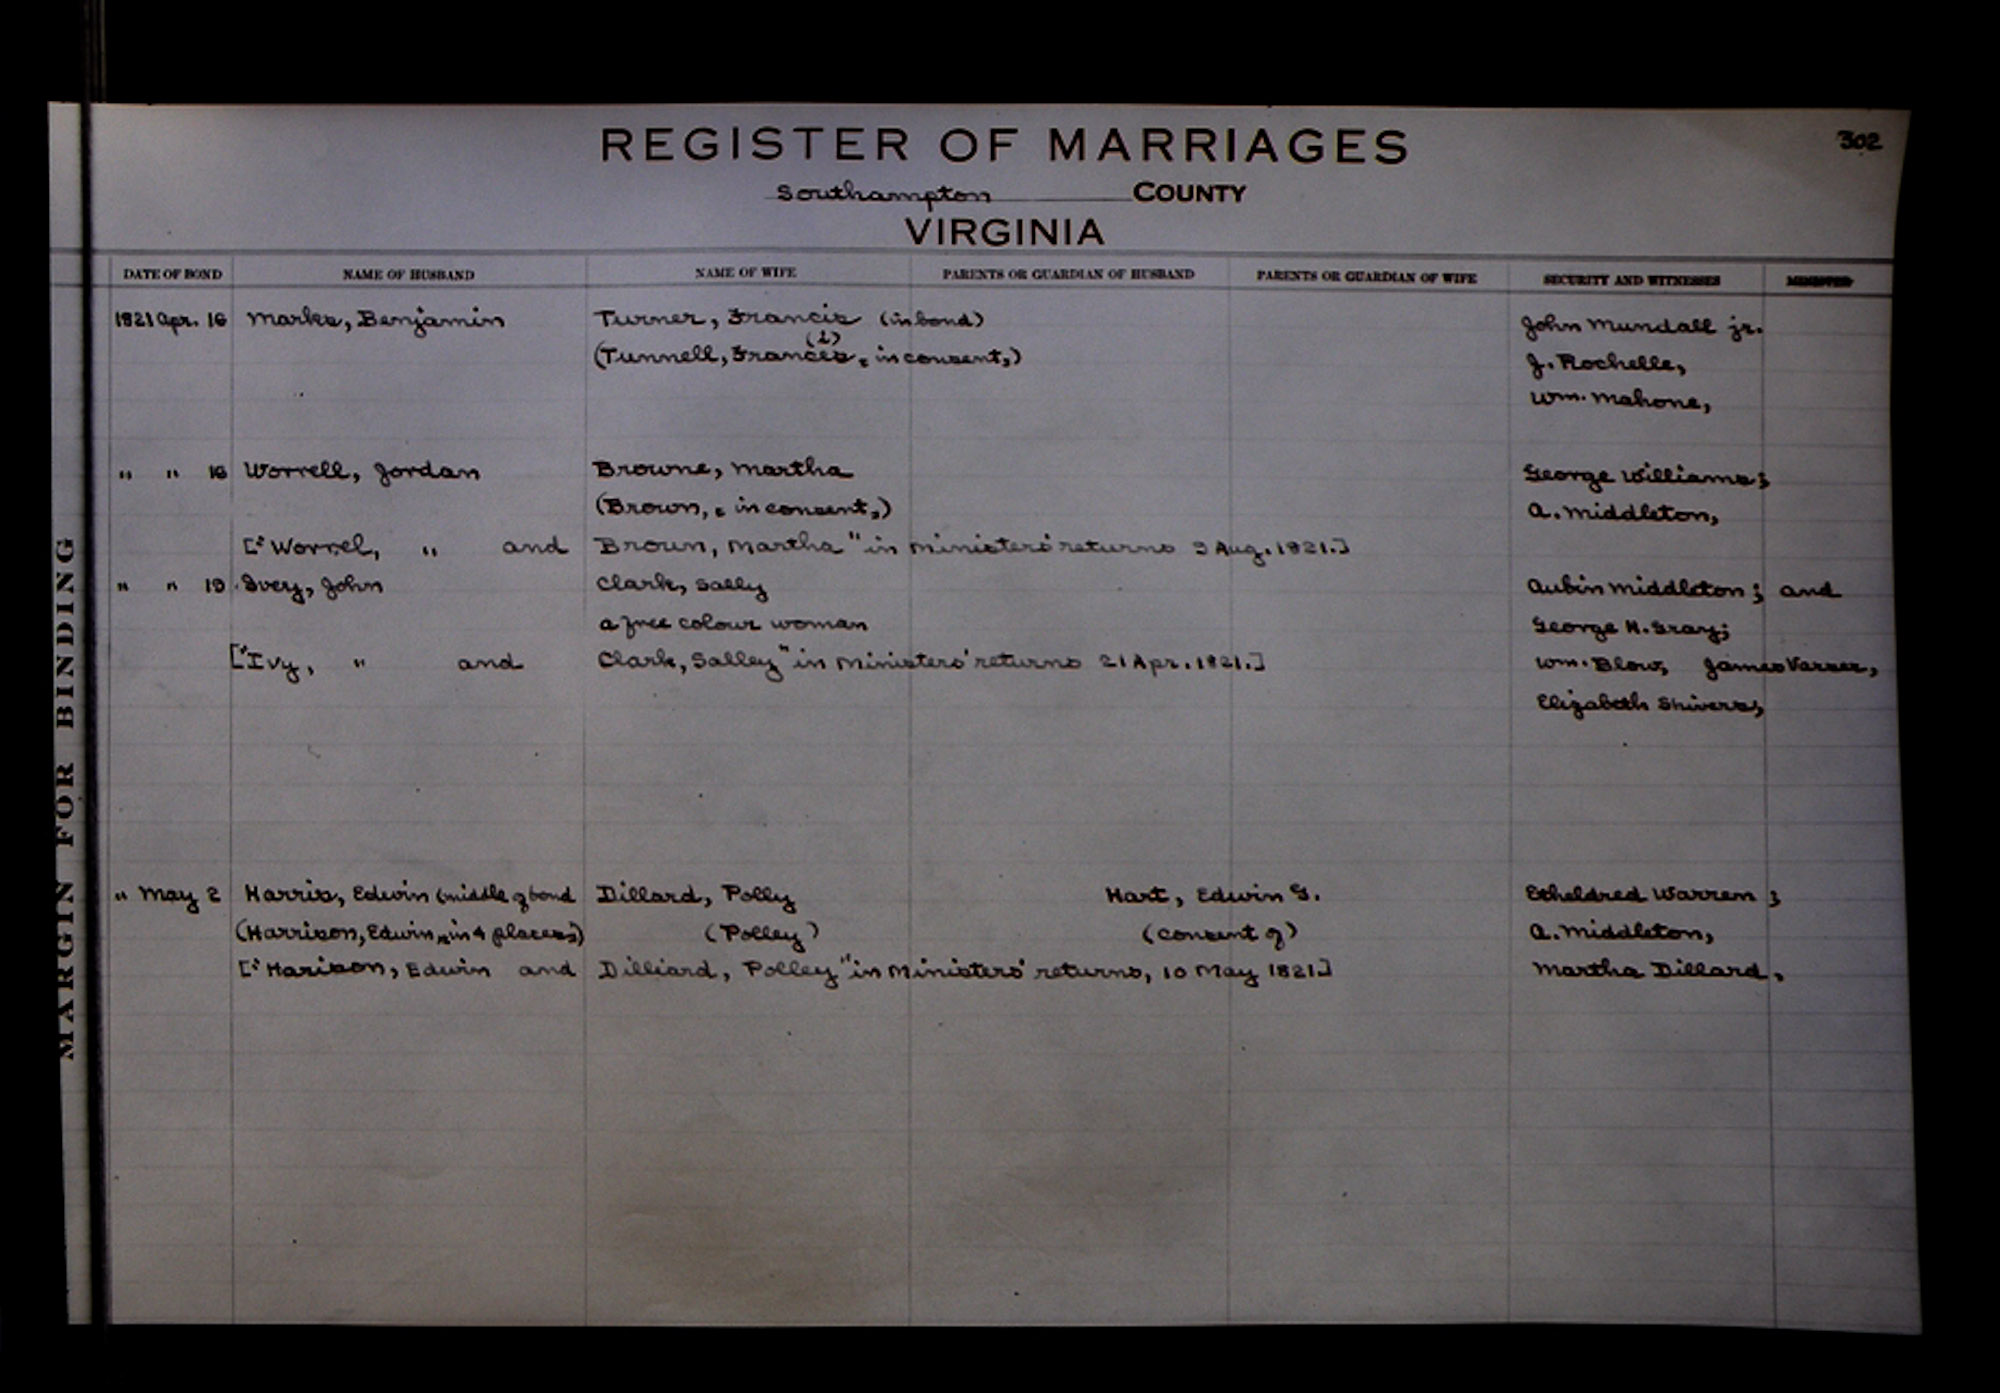 302
REGISTER OF MARRIAGES
Southampton COUNTY
VIRGINIA
MARGIN FOR BINDING
DATE OF BOND NAME OF HUSBAND NAME OF WIFE PARENTS OR GUARDIAN OF HUSBAND PARENTS OR GUARDIAN OF WIFE SECURITY AND WITNESSES MINISTER
1821 Apr. 16 Marks, Benjamin Turner, Francis (in bond) John Mundall jr.
(i)
(Tunnell, Frances, " in consent,) J. Rochelle,
Wm. Mahone,
" " 16 Worrell, Jordan Browne, Martha George Williams;
(Brown, " in consent,) A. Middleton,
["Worrel, " and Broun, Martha" in Ministers' returns 9 Aug. 1821.]
" " 19 Ivey, John Clark, Sally Aubin Middleton; and
a free colour woman George H. Gray;
["Ivy, " and Clark, Salley" in Ministers' returns 21 Apr. 1821.] Wm. Blow, James Varser,
Elizabeth Shivers,
" May 2 Harris, Edwin (middle of bond Dillard, Polly Hart, Edwin G. Etheldred Warren;
(Harrison, Edwin, " in 4 places) (Polley) (consent of) A. Middleton,
["Harison, Edwin and Dilliard, Polley" in Ministers' returns, 10 May 1821] Martha Dillard,